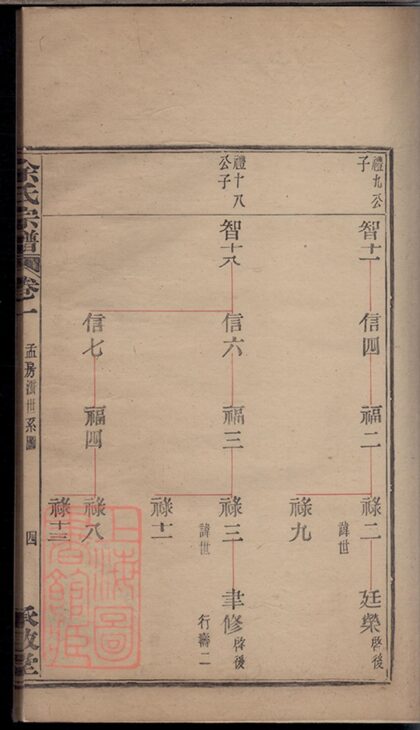 禮九公子
智十二
信四
福二
祿二
諱世
廷榮
啓後
祿九
禮十八公子
智十八
信六
福三
祿三
諱世
聿修
啓後
行壽二
祿十一
信七
福四
祿八
祿十三
余氏宗譜
卷之一
孟房派世系圖
四
承啟堂
上海圖書館藏